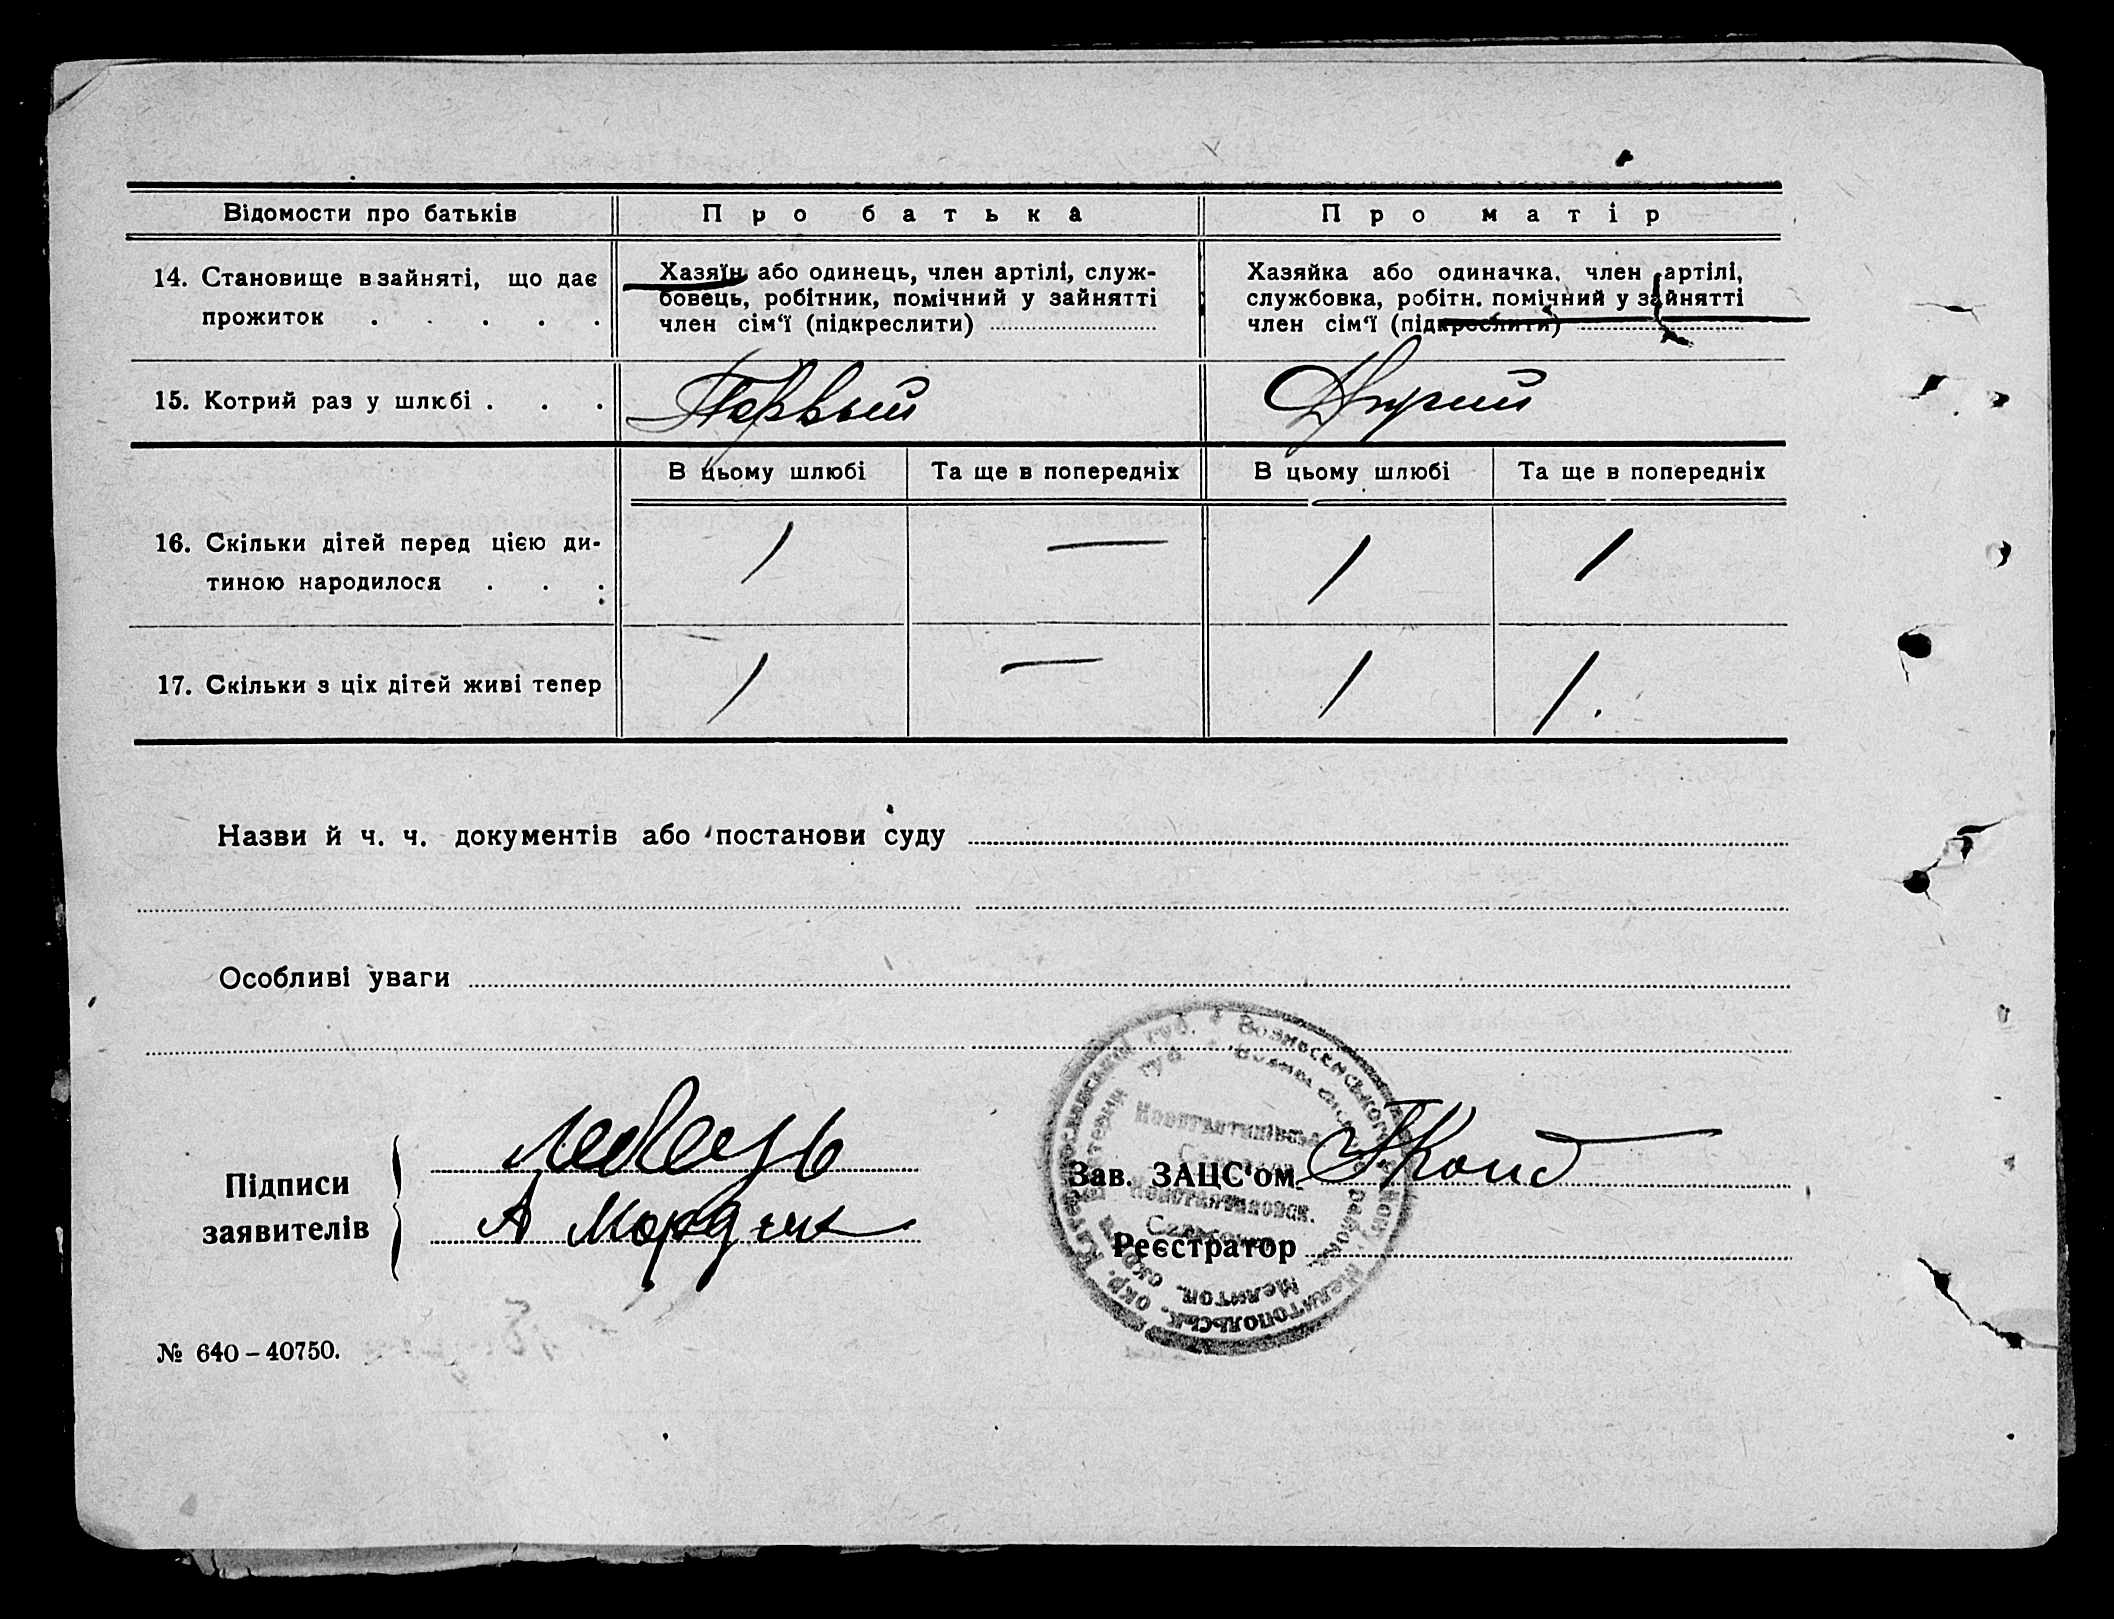 Відомости про батьків
Про батька
Про матір
14. Становище в зайняті, що дає
прожиток . . . . .
Хазяїн або одинець, член артілі, служ-
бовець, робітник, помічний у зайнятті
член сім‘ї (підкреслити)
Хазяйка або одиначка, член артілі,
службовка, робітн. помічний у зайнятті
член сім‘ї (підкреслити)
15. Котрий раз у шлюбі . . .
Первый
Другий
В цьому шлюбі
Та ще в попередніх
В цьому шлюбі
Та ще в попередніх
16. Скільки дітей перед цією ди-
тиною народилося . . .
1
—
1
1
17. Скільки з ціх дітей живі тепер
1
—
1
1.
Назви й ч. ч. документів або постанови суду
Особливі уваги
Підписи
заявителів
А Мордик
Зав. ЗАЦС‘ом
Реєстратор
Катеринославської губ. * Вознесенського
Мелитопольськ. окр.
Мелитоп. окр.
№ 640–40750.